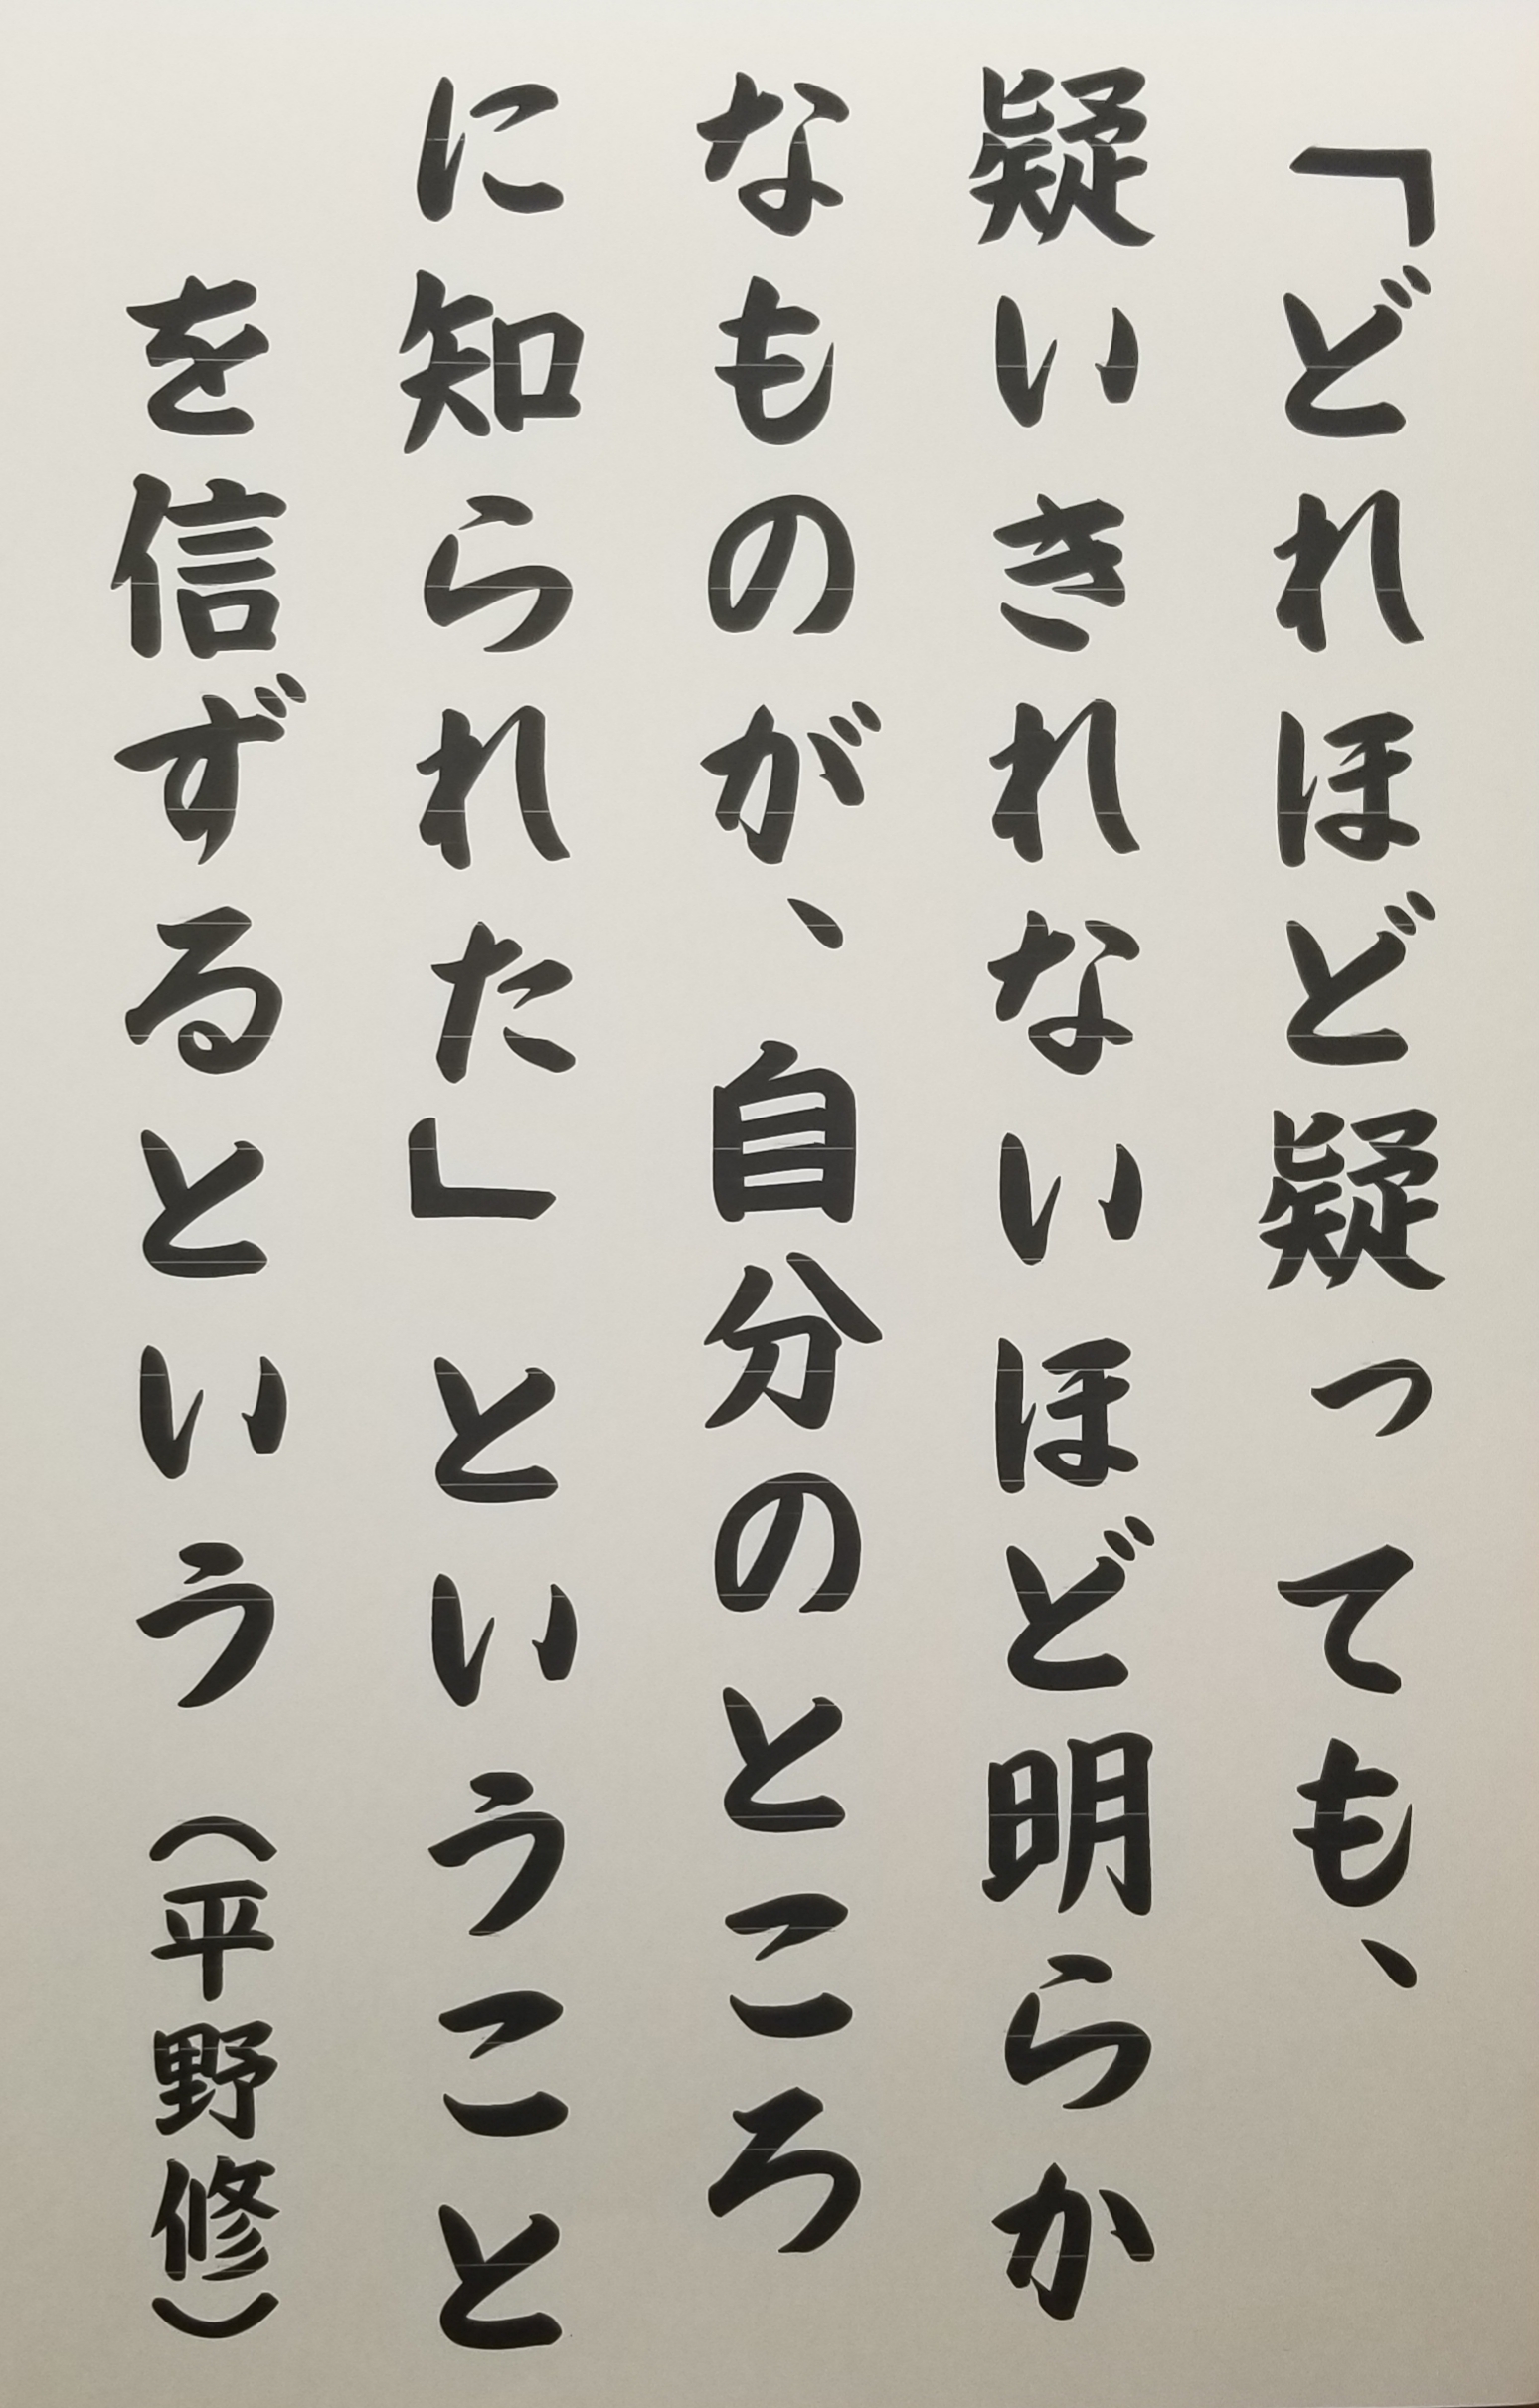 「どれほど疑っても、
疑いきれないほど明らか
なものが、自分のところ
に知られた」ということ
を信ずるという（平野修）